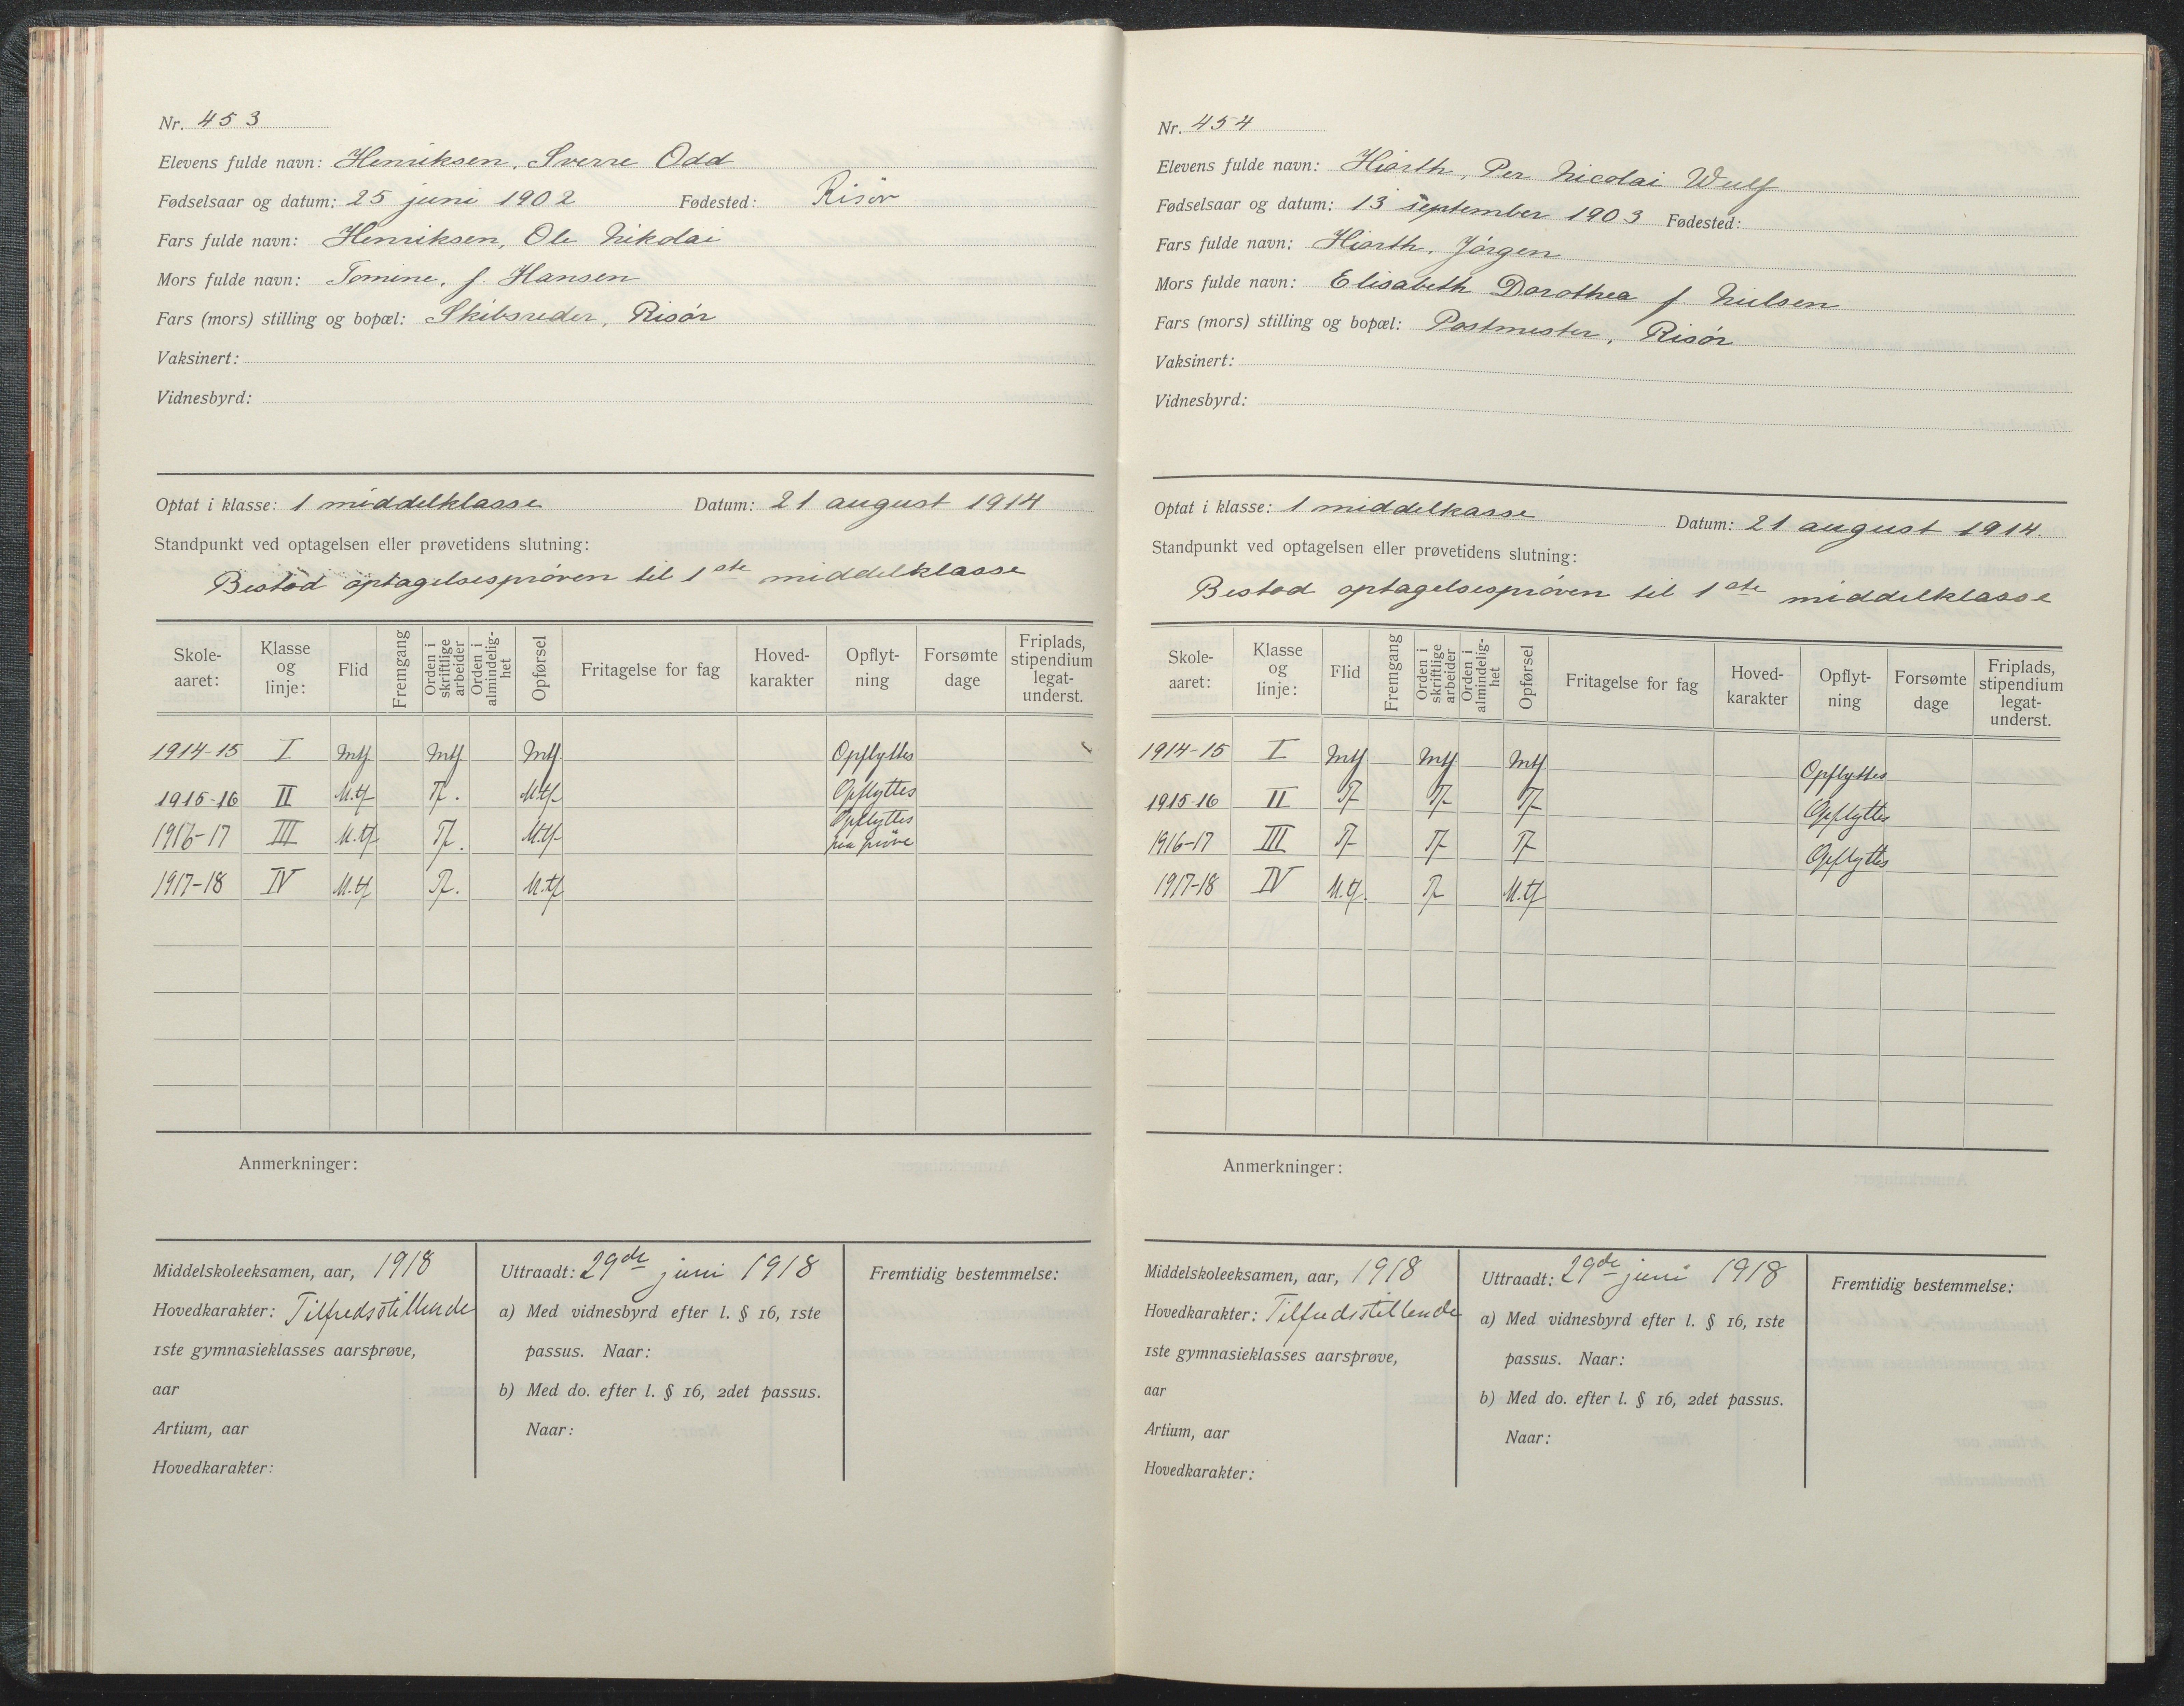 Nr. 453
Elevens fulde navn: Henriksen, Sverre Odd
Fødselsaar og datum: 25 juni 1902 Fødested: Risør
Fars fulde navn: Henriksen, Ole Nikolai
Mors fulde navn: Tomine, f. Hansen
Fars (mors) stilling og bopæl: Skibsreder, Risør
Vaksinert:
Vidnesbyrd:
Optat i klasse: 1 middelklasse Datum: 21 august 1914
Standpunkt ved optagelsen eller prøvetidens slutning:
Bestod optagelsesprøven til 1ste middelklasse
Skole-aaret: Klasse og linje: Flid Fremgang Orden i skriftlige arbeider Orden i almindelig-het Opførsel Fritagelse for fag Hoved-karakter Opflyt-ning Forsømte dage Friplads, stipendium legat-underst.
1914-15 I Mtf Mtf Mtf Opflyttes
1915-16 II M.tf Tf. M.tf Opflyttes
1916-17 III M.tf Tf. M.tf Opflyttes paa prøve
1917-18 IV M.tf Tf. M.tf
Anmerkninger:
Middelskoleeksamen, aar, 1918
Hovedkarakter: Tilfredsstillende
1ste gymnasieklasses aarsprøve,
aar
Artium, aar
Hovedkarakter:
Uttraadt: 29de juni 1918
a) Med vidnesbyrd efter l. § 16, 1ste
passus. Naar:
b) Med do. efter l. § 16, 2det passus.
Naar:
Fremtidig bestemmelse:
Nr. 454
Elevens fulde navn: Hiorth, Per Nicolai Wulf
Fødselsaar og datum: 13 september 1903 Fødested:
Fars fulde navn: Hiorth, Jörgen
Mors fulde navn: Elisabeth Dorothea f. Nielsen
Fars (mors) stilling og bopæl: Postmester, Risør
Vaksinert:
Vidnesbyrd:
Optat i klasse: 1 middelkasse Datum: 21 august 1914.
Standpunkt ved optagelsen eller prøvetidens slutning:
Bestod optagelsesprøven til 1ste middelklasse
Skole-aaret: Klasse og linje: Flid Fremgang Orden i skriftlige arbeider Orden i almindelig-het Opførsel Fritagelse for fag Hoved-karakter Opflyt-ning Forsømte dage Friplads, stipendium legat-underst.
1914-15 I Mtf Mtf Mtf Opflyttes
1915-16 II Tf Tf Tf Opflyttes
1916-17 III Tf Tf Tf Opflyttes
1917-18 IV M.tf. Tf M.tf
Anmerkninger:
Middelskoleeksamen, aar, 1918
Hovedkarakter: Tilfredsstillende
1ste gymnasieklasses aarsprøve,
aar
Artium, aar
Hovedkarakter:
Uttraadt: 29de juni 1918
a) Med vidnesbyrd efter l. § 16, 1ste
passus. Naar:
b) Med do. efter l. § 16, 2det passus.
Naar:
Fremtidig bestemmelse: